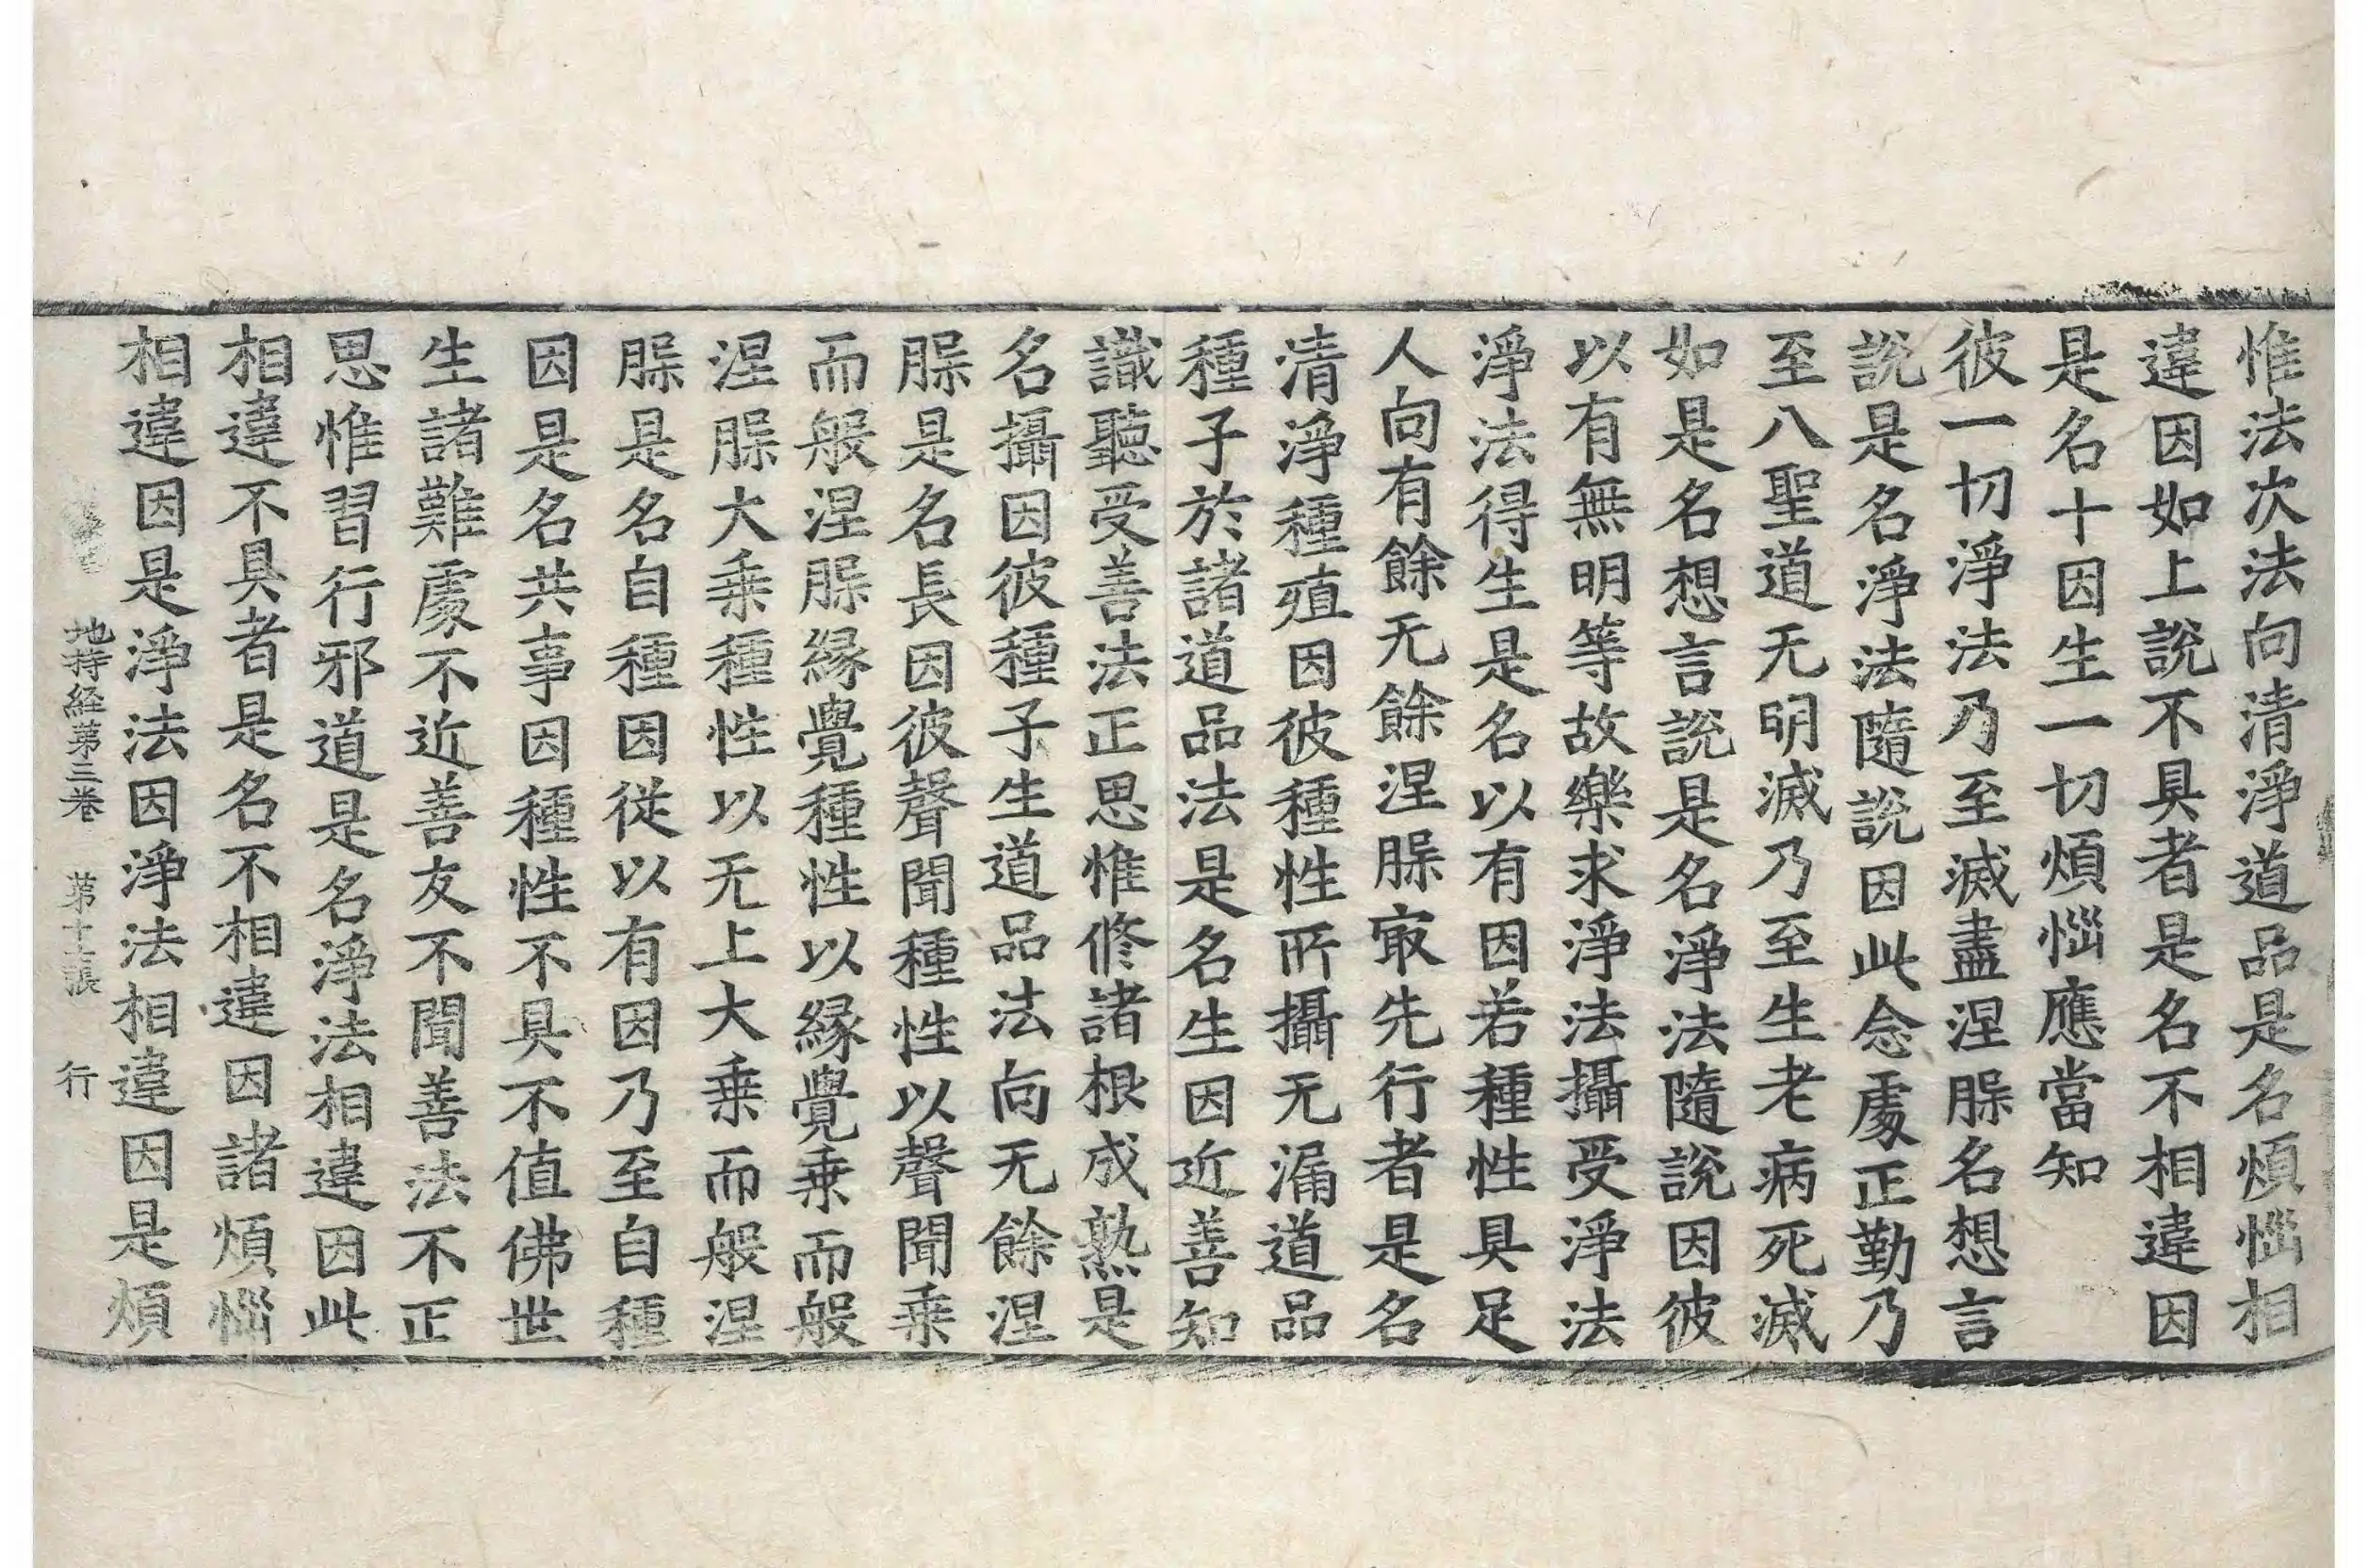 惟法次法向清淨道品是名煩惱相
違因如上說不具者是名不相違因
是名十因生一切煩惱應當知
彼一切淨法乃至滅盡涅脲名想言
說是名淨法隨說因此念處正勤乃
至八聖道无明滅乃至生老病死滅
如是名想言說是名淨法隨說因彼
以有無明等故樂求淨法攝受淨法
淨法得生是名以有因若種性具足
人向有餘无餘涅脲㝡先行者是名
清淨種殖因彼種性所攝无漏道品
種子於諸道品法是名生因近善知
識聽受善法正思惟修諸根成熟是
名攝因彼種子生道品法向无餘涅
脲是名長因彼聲聞種性以聲聞乗
而般涅脲縁覺種性以縁覺乗而般
涅脲大乗種性以无上大乗而般涅
脲是名自種因從以有因乃至自種
因是名共事因種性不具不值佛世
生諸難處不近善友不聞善法不正
思惟習行邪道是名淨法相違因此
相違不具者是名不相違因諸煩惱
相違因是淨法因淨法相違因是煩
地持経苐三巻 苐十二張 行